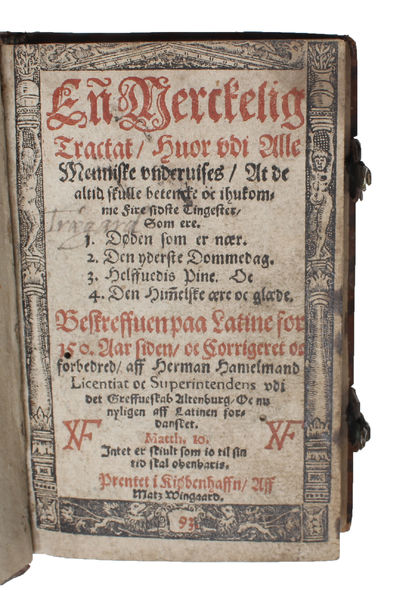 En Merckelig
Tractat / Huor vdi Alle
Menniske vnderuises / At de
altid skulle betencke oc ihukom-
me Fire sidste Tingester /
Som ere.
1. Døden som er nær.
2. Den yderste Dommedag.
3. Helffuedis Pine. Oc
4. Den Him̃elske ære oc glæde.
Beskreffuen paa Latine for
150. Aar siden / oc Corrigeret oc
forbedred / aff Herman Hamelmand
Licentiat oc Superintendens vdi
det Greffueskab Altenburg / Oc nu
nyligen aff Latinen for-
dansket.
Matth. 10.
Intet er skiult som io til sin
tid skal obenbaris.
Prentet i Kiøbenhaffn / Aff
Matz Wingaard.
93